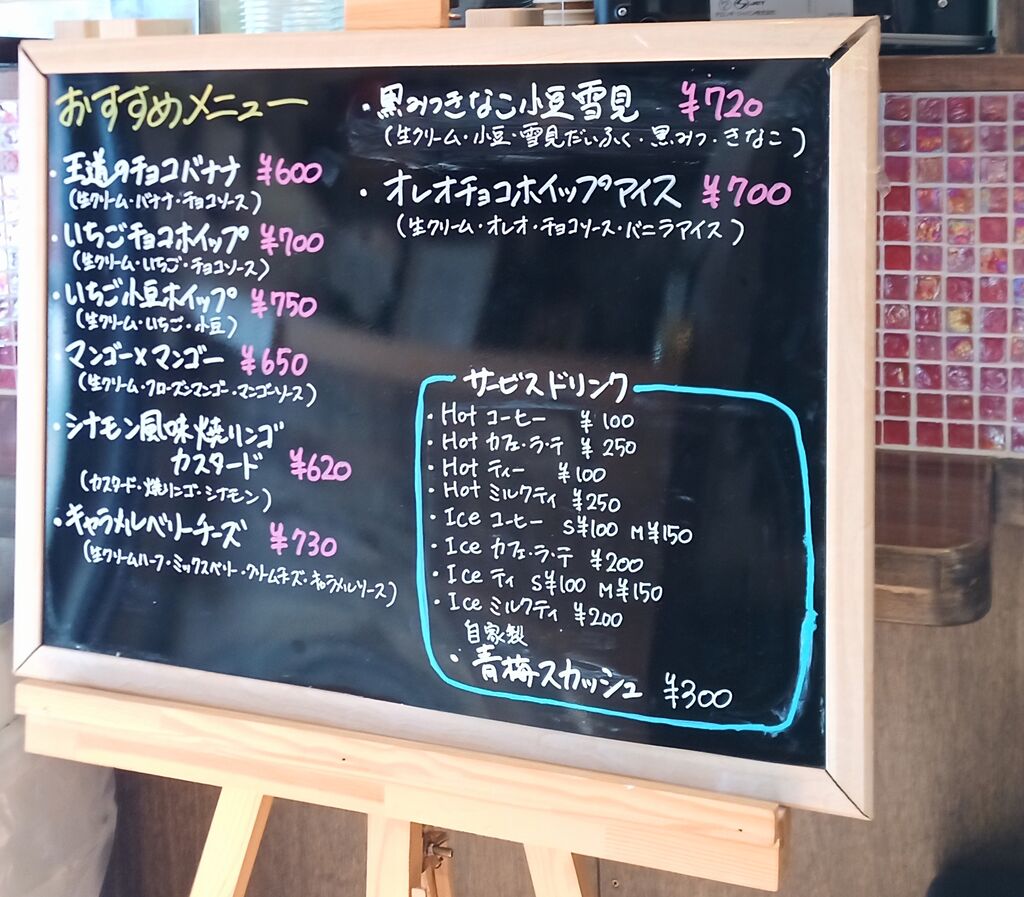 おすすめメニュー
・王道のチョコバナナ ¥600
(生クリーム・バナナ・チョコソース)
・いちごチョコホイップ ¥700
(生クリーム・いちご・チョコソース)
・いちご小豆ホイップ ¥750
(生クリーム・いちご・小豆)
・マンゴー×マンゴー ¥650
(生クリーム・フローズンマンゴー・マンゴソース)
・シナモン風味焼リンゴ
カスタード ¥620
(カスタード・焼リンゴ・シナモン)
・キャラメルベリーチーズ ¥730
(生クリームハーフ・ミックスベリー・クリームチーズ・キャラメルソース)
・黒みつきなこ小豆雪見 ¥720
(生クリーム・小豆・雪見だいふく・黒みつ・きなこ)
・オレオチョコホイップアイス ¥700
(生クリーム・オレオ・チョコソース・バニラアイス)
サービスドリンク
・Hot コーヒー ¥100
・Hot カフェ・ラ・テ ¥250
・Hot ティー ¥100
・Hot ミルクティ ¥250
・Ice コーヒー S¥100 M¥150
・Ice カフェ・ラ・テ ¥200
・Ice ティ S¥100 M¥150
・Ice ミルクティ ¥200
自家製
・青梅スカッシュ ¥300